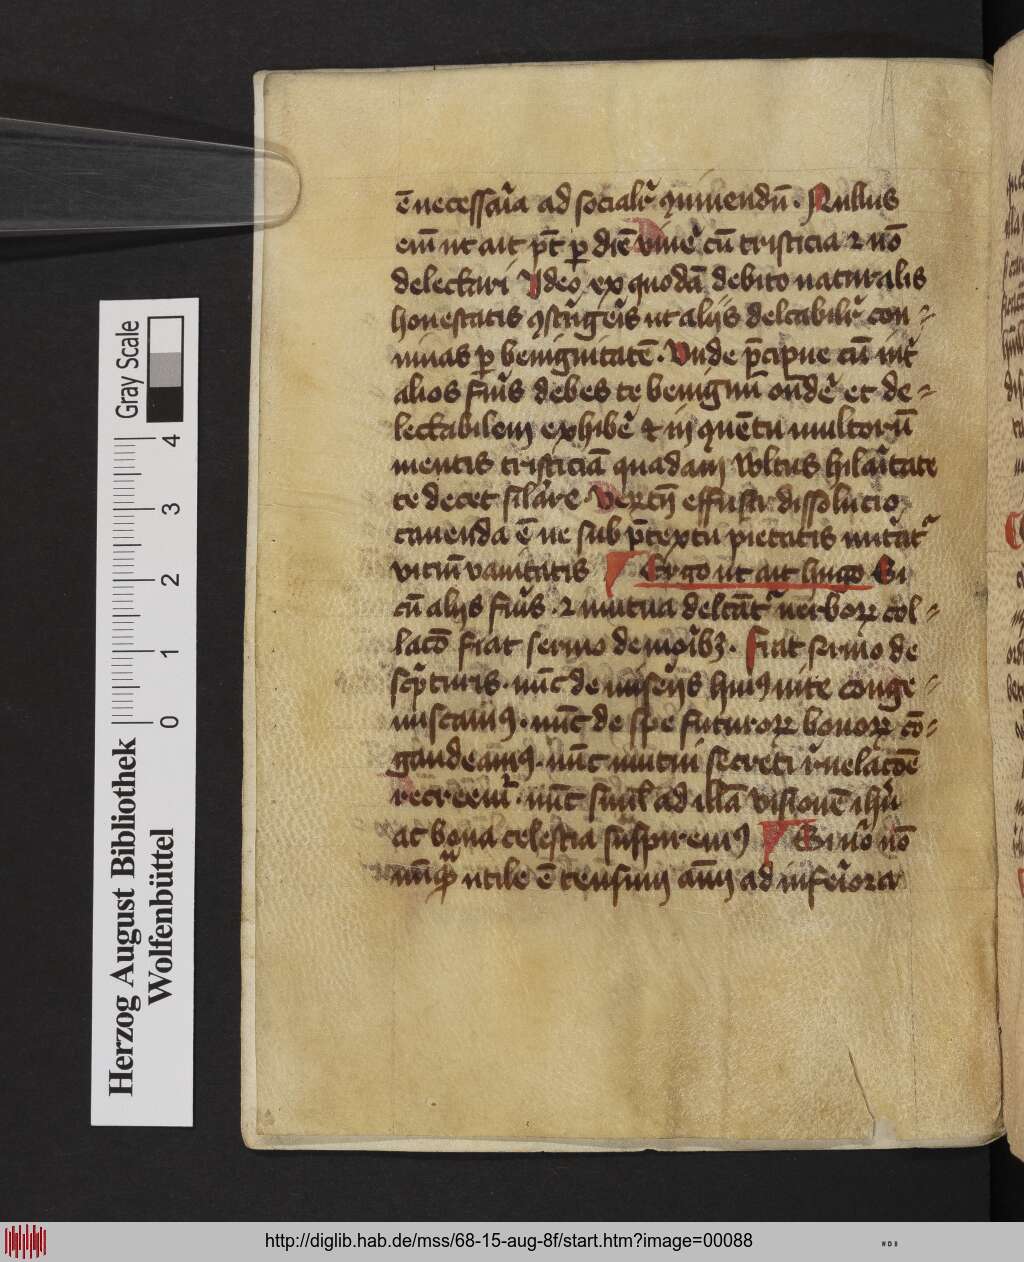 ē necessar̄ia ad socialr̄ ꝯuiuendū. Nullus
em̄ ut ait ph̄t ꝑ diē viuē cū tristicia ⁊ nō
delectari Ideo ex quodā debito naturalis
honestatis ꝯstringeris ut alijs delcabilr̄ con⸗
uiuas ꝑ benignitatē. Vnde p̄cipue cū int̄
alios fuis debes te benignū ondē et de⸗
lectabilem exhibē ⁊ in quētu multorū
mentis tristiciā quadam wltus hilaritate
te decet silare. Verctn̄ effusa dissolucio
cauenda ē ne sub p̄textu pietatis nut̄at᷑
viciū vanitatis Ergo ut ait hugo Si
cū alijs fuis. ⁊ mutua delcāt᷑ uerboꝝ col⸗
lacō fiat sermo de moribꝫ. fiat sermo de
scpturis. nūc de miserijs huiꝰ vite conge⸗
miscamꝰ. nūc de spe futuroꝝ bonoꝝ cō⸗
gaudeamꝰ. nūc mutui secreti reuelacōe
recreem᷑. nūc simul ad illā visionē ihū
ac bona celestia suspiremꝰ Si uo nō
nūq̄ utile ē tensum aīm ad inferiora
Herzog August Bibliothek
Wolfenbüttel
0 1 2 3 4
Gray Scale
http://diglib.hab.de/mss/68-15-aug-8f/start.htm?image=00088